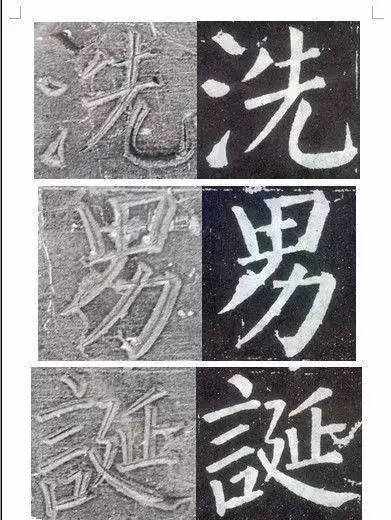 洗 洗
男 男
誕 誕